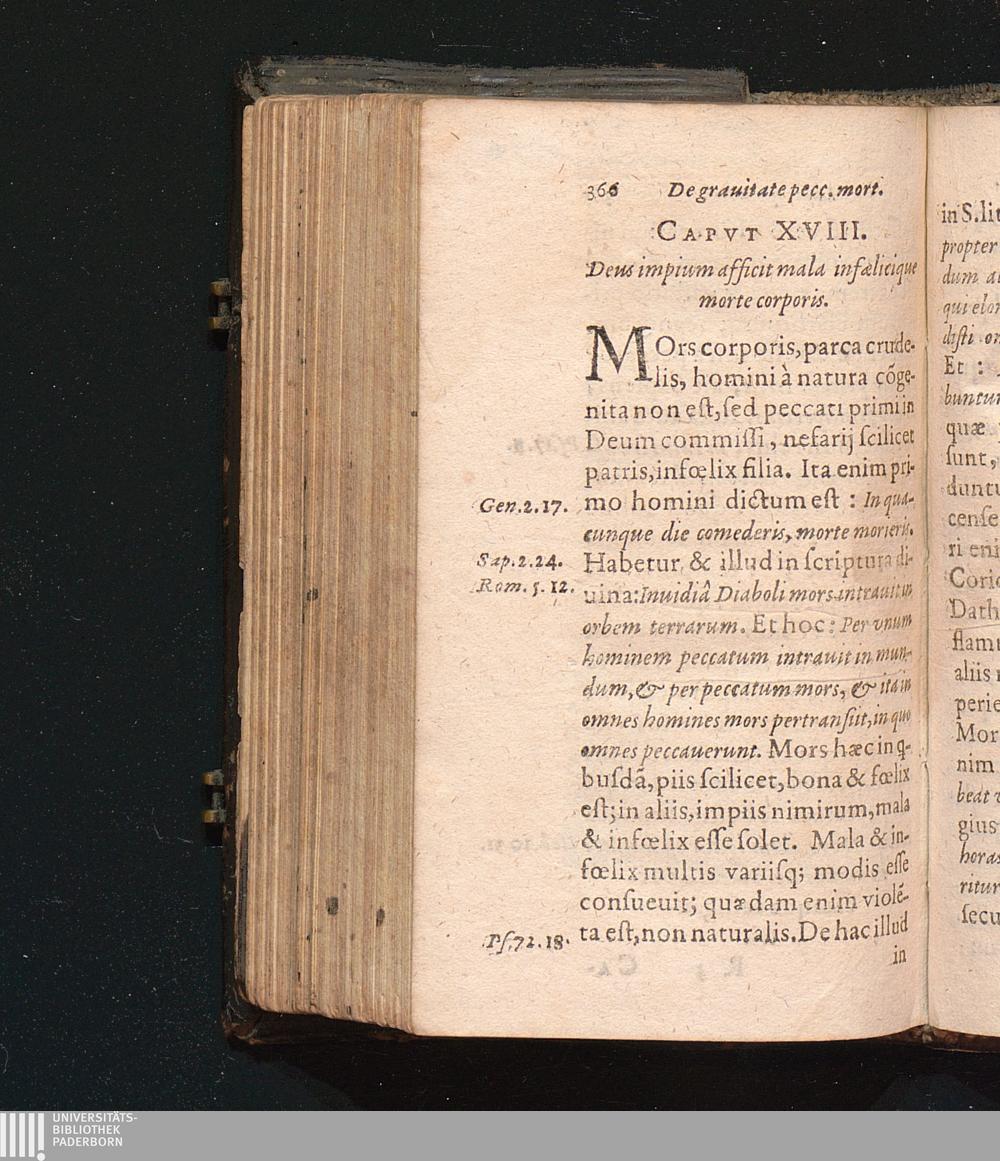 366 De grauitate pecc. mort.
CAPVT XVIII.
Deus impium afficit mala infælicique
morte corporis.
MOrs corporis, parca crude-
lis, homini à natura cõge-
nita non est, sed peccati primi in
Deum commissi, nefarij scilicet
patris, infœlix filia. Ita enim pri-
Gen. 2. 17.
mo homini dictum est : In qua-
cunque die comederis, morte morieris.
Sap. 2. 24.
Habetur & illud in scriptura di-
Rom. 5. 12.
uina: Inuidiâ Diaboli mors intrauit in
orbem terrarum. Et hoc: Per vnum
hominem peccatum intrauit in mun-
dum, & per peccatum mors, & ita in
omnes homines mors pertransiit, in quo
omnes peccauerunt. Mors hæc in q-
busdã, piis scilicet, bona & fœlix
est; in aliis, impiis nimirum, mala
& infœlix esse solet. Mala & in-
fœlix multis variisq; modis esse
consueuit; quædam enim violẽ-
Ps. 72. 18.
ta est, non naturalis. De hac illud
in
in S. lit
propter
dum
qui elon
disti
Et :
buntur
quæ
sunt,
duntu
cense
ri eni
Corio
Dath
flamm
aliis
perie
Mor
nim
beat
gius
horas
ritur
secu
UNIVERSITÄTS-
BIBLIOTHEK
PADERBORN